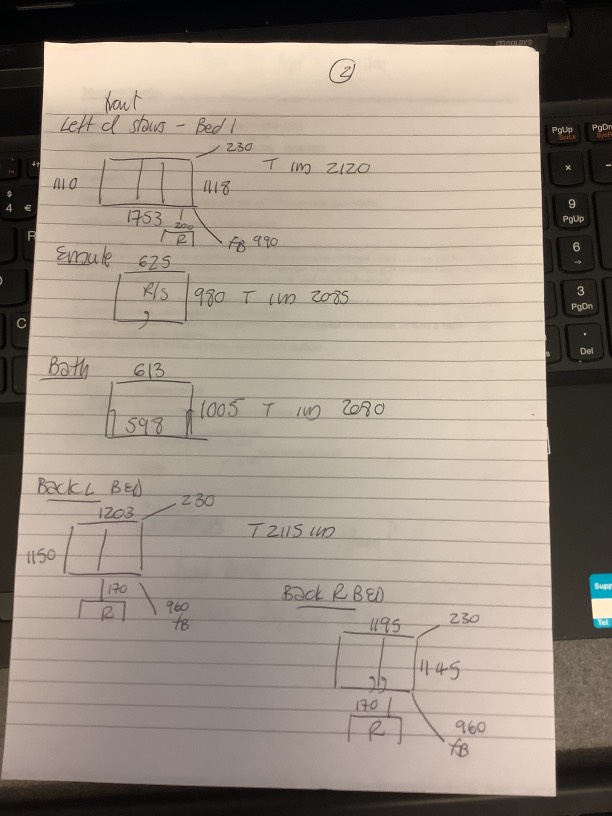 2
front
Left of stairs - Bed 1
230
T 2120
1110
1118
1753
200
R
fB 990
Ensuite
625
R/S
980 T 2085
Bath
613
1005 T 2080
598
Back L BED
1203
230
T 2115
1150
170
R
960
fB
Back R BED
1195
230
1145
170
R
960
fB
PgUp
PgDn
$
4 €
R
C
9
PgUp
6
→
3
PgDn
.
Del
Supp
Tel: